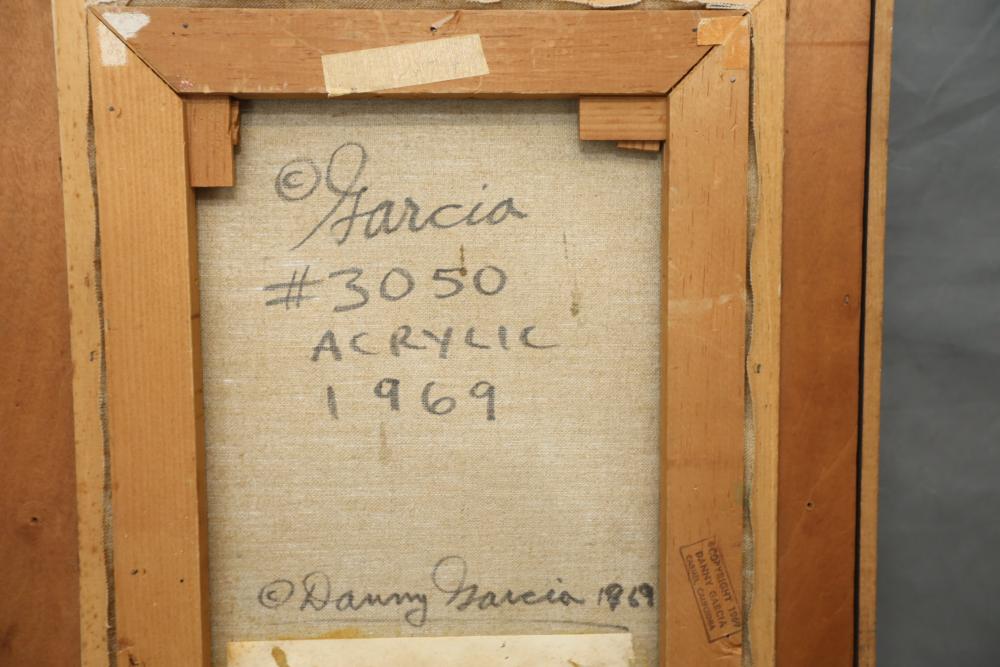 © Garcia
#3050
ACRYLIC
1969
© Danny Garcia 1969
©COPYRIGHT
DANNY GARCIA
CARMEL, CALIFORNIA